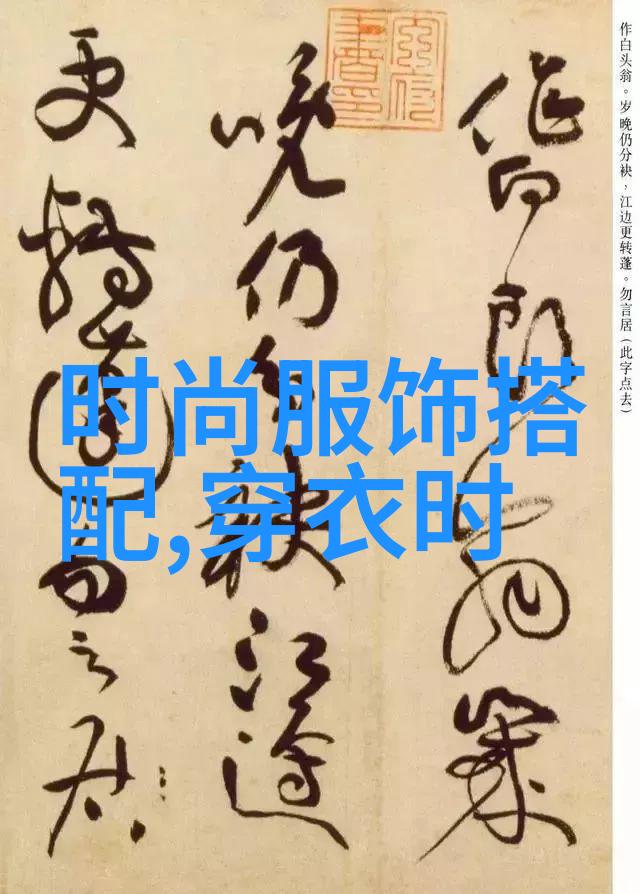 作白头翁。岁晚仍分袂，江边更转蓬。勿言居（此字点去）
作白頭翁歲
晚仍分袂江邊
更轉蓬勿言居
时尚服饰搭
配,穿衣时